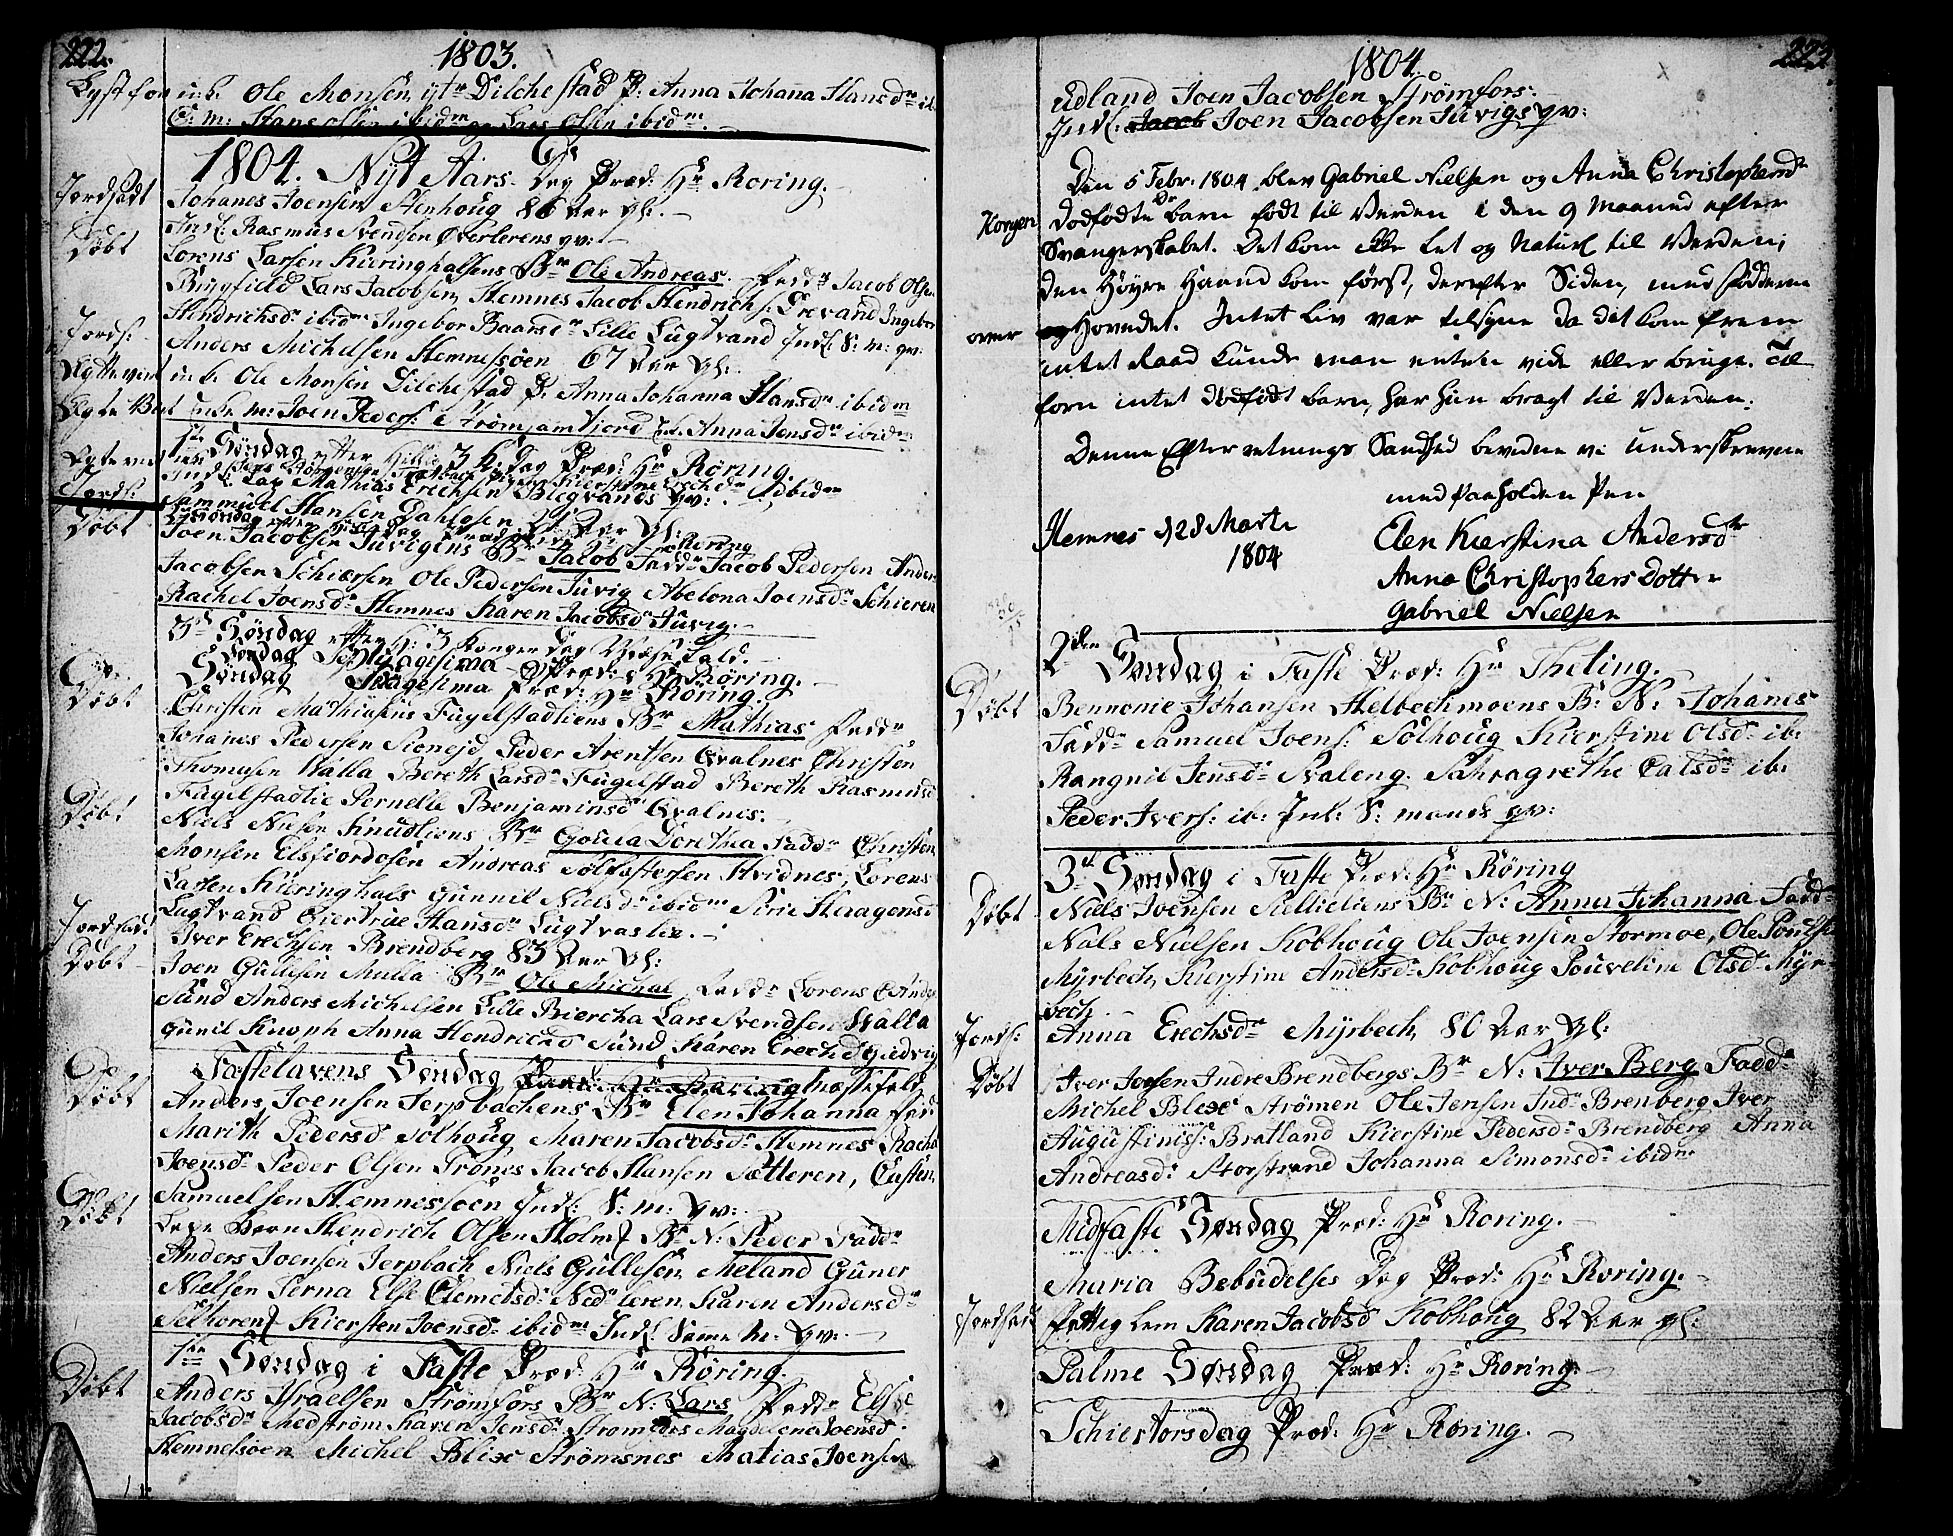 222.
1803.
Lyst for u: b. Ole Monsen ytr Dilchestad P. Anna Johana Hansdr ib.
C: m: Hans Olsen ibidm og Lars Olsen ibidm. –
1804. Nyt Aars Dag Præd: Hr Röring. –
Jordsadt Johanes Joensen Stenhoug 86 Aar gl: –
Indl. Rasmus Svendsen Overlerens qv: –
Döbt Lorens Larsen Kieringhalsens Br Ole Andreas. Fadd: Jacob Olsen
Brygfield Lars Jacobsen, Hemnes Jacob Hendrichs: Drevand Ingebor
Hendrichsdr ibidm Ingebor Baarsdr Lille Lugtvand Indl. S: m: qv:
Jords: Anders Michelsen Hemnessöen 67 Aar gl:
Ægteviet u. b. Ole Monsen Dilchestad P. Anna Johanna Hansdr ibidm
Joen Peders: Strömsamfiord Anna Jensdr ibidm
1ste Söndag efter H: 3 K: Dag Præd: Hr Röring.
Mathias Erichsen Blegvands qv:
Jords: Sammuel Hansen Dahlosen
Döbt Joen Jacobsen Juvigens Br Jacob Fadd: Jacob Pedersen Anders
Jacobsen Schieresen Ole Pedersen Juvig Abelona Joensdr Schieren
Rachel Joensdr Hemnes Karen Jacobsdr Juvig. –
3de Söndag efter H: 3 Kongers Dag Messefald. –
Söndag Septuagesima Præd: Hr Röring. –
Söndag Sexagesima Præd: Hr Röring.
Döbt Christen Mathiasens Fugelstadliens Br Mathias Fadd:
Johanes Pedersen Peder Arentsen Qvalnes Christen
Thomasen Walla Bereth Larsdr Fugelstad Bereth Rasmusd
Fugelstadlie Pernelle Benjaminsd Qvalnes. –
Döbt Niels Nielsen Knudliens Br Gollua Dorethea Fadd: Christen
Monsen Elsfiordosen Andreas Tollefsersen Hvidnes, Lorens
Larsen Kieringhals Gunnil Nielsdr ibidm Siri Haagensd
Lugtvand Giertrue Hansdr Lugtvaslie. –
Jordsadt Iver Erechsen Brendberg 83 Aar gl:
Döbt Joen Gullesen Mulla Br Ole Michal Fadd: Lorens
Sund Anders Michelsen Lille Biercha Lars Svendsen Walla
Gunil Knoph Anna Hendrichsd Sund Karen Erechsd
Fastelavens Söndag Præd: Hr Röring Messefald.
Döbt Anders Joensen Jerpbachens Br Elen Johanna Fad
Marith Pedersd Solhoug Maren Jacobsdr Hemnes Rachel
Joensdr Peder Olsen Trones Jacob Hansen Sætteren, Casten
Samuelsen Hemnessöen Indl: S: m: qv: –
Döbt Hendrich Olsen Holm Br N: Peder Fadd:
Anders Joensen Jerpbach Niels Gullesen Meland Guner
Nielsen Terna Else Clemetsd: Ned: leren Karen Andersdr
Selhoren Kiersten Joensdr ibidm Indl. Same M. qv: –
1ste Söndag i Faste Præd: Hr Röring.
Döbt Anders Israelsen Strömfors Br N: Lars Fadd: Else
Jacobsdr Medström Karen Jensdr Magdelena Joensd
Hemnesöen Michel Blixe Strömsnes Matias Joensen
223
1804.
Udland Joen Jacobsen Strömfors:
Indl: Jacob Joen Jacobsen Juvigs qv:
Den 5 Febr: 1804 blev Gabriel Nielsen og Anna Christophersdr
Korgen Dodfödte barn födt til Verden i den 9 Maaned efter
Svangerskabet. Det kom ikke let og Naturl til Verden;
den Höyre Haand kom först, derefter Siden, med födderne
over og Hovedet. Intet Liv var tilsyne da det kom frem
intet Raad kunde man enten vide eller bruge. Til
forn intet dödfödt barn, har hun bragt til Verden.
Denne Efterretnings Sandhed bevidne vi underskrevne
med paaholden Pen
Hemnes d 28 Marti
1804
Elen Kierstina Andersdtr
Anna Christophers Dotter
Gabriel Nielsen
2den Söndag i Faste Præd: Hr Theting. –
Döbt Bennonie Johansen Helbechmoens B: N: Johanes
Fadd: Samuel Joens: Solhoug Kierstine Olsdr ib:
Rangnil Jensdr Svaleng. Sahragrethe Calsdr ib:
Peder Ivers: ib: Inl: S: mands qv:
3de Söndag i Faste Præd: Hr Röring
Döbt Niels Joensen Br N: Anna Johanna Fadd:
Nals Nielsen Kobhoug Ole Joensen Stormoe, Ole Poulse
Myrbech, Kierstine Andersdr Kobhoug Pouveline Olsdr Myr
bech
Jords: Anna Erechsdr Myrbech, 80 Aar gl:
Döbt Iver Joensen Indre Brendbergs Br N: Iver Berg Fadd:
Michel Blixe Strömen Ole Jensen Indr Brenberg Iver
Augustiniss: Bratland Kierstine Pedersdr Brendberg Anna
Andreasdr Storstrand Johanna Simonsdr ibidm
Midfaste Söndag Præd: Hr Roring. –
Maria Bebudelses Dag Præd: Hr Roring. –
Jordsadt Fattig lem Karen Jacobsd Kobhoug 82 Aar gl:
Palme Söndag Præd: Hr Roring. –
Schiertorsdag Præd: Hr Röring. –